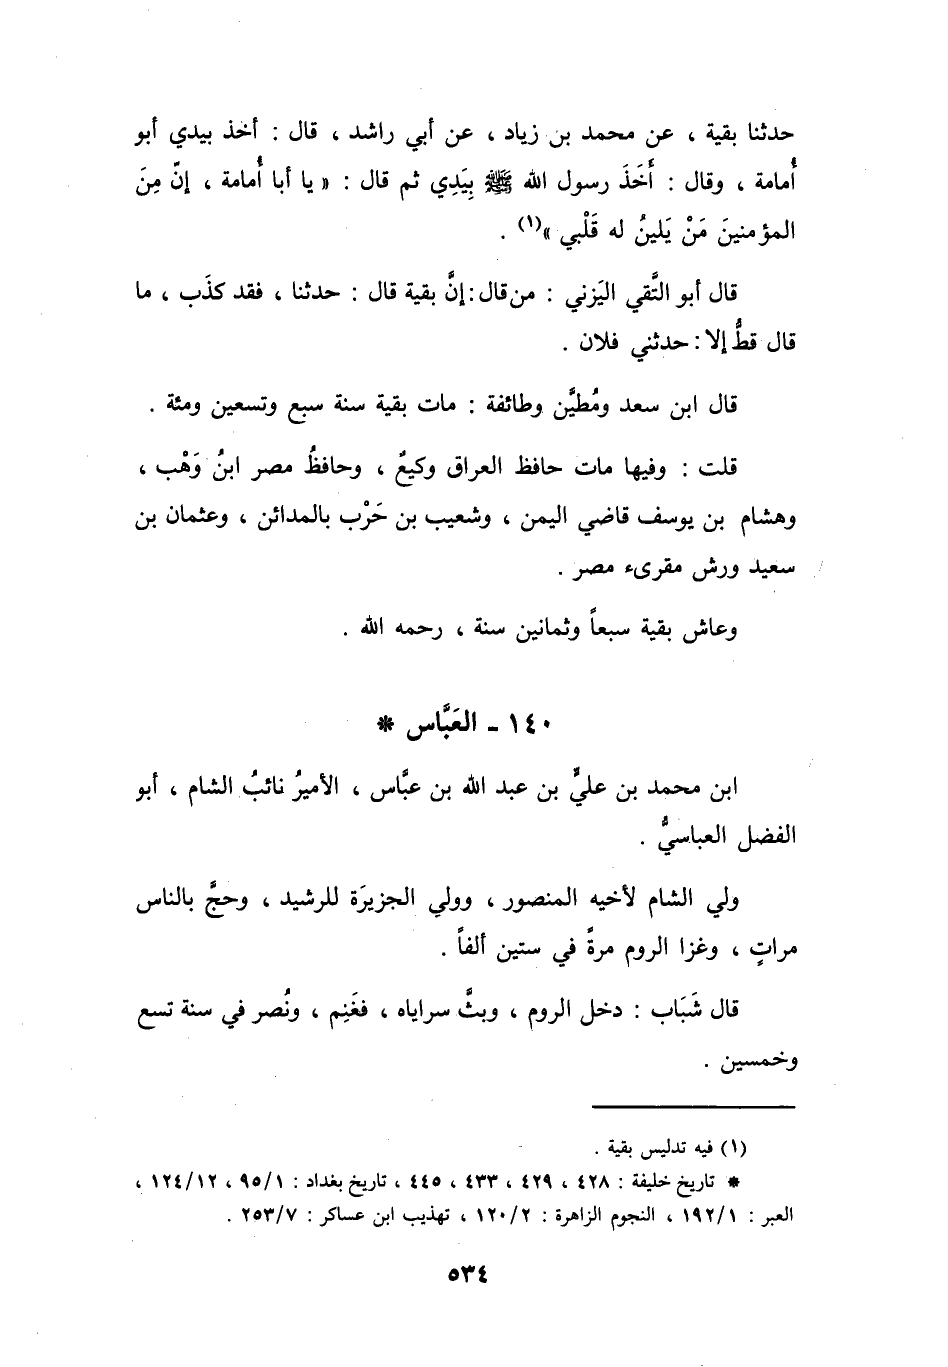 حدثنا بقية ، عن محمد بن زياد ، عن أبي راشد ، قال : أخذ بيدي أبو
أُمامة ، وقال : أَخَذَ رسول الله ﷺ بِيَدِي ثم قال : « يا أبا أُمامة ، إنّ مِنَ
المؤمنينَ مَنْ يَلينُ له قَلْبي »(١) .
قال أبو التَّقي اليَزني : من قال : إنَّ بقية قال : حدثنا ، فقد كذَب ، ما
قال قطُّ إلا : حدثني فلان .
قال ابن سعد ومُطيَّن وطائفة : مات بقية سنة سبع وتسعين ومئة .
قلت : وفيها مات حافظ العراق وكيعٌ ، وحافظُ مصر ابنُ وَهْب ،
وهشام بن يوسف قاضي اليمن ، وشعيب بن حَرْب بالمدائن ، وعثمان بن
سعيد ورش مقرىء مصر .
وعاش بقية سبعاً وثمانين سنة ، رحمه الله .
١٤٠ - العَبَّاس *
ابن محمد بن عليٍّ بن عبد الله بن عبَّاس ، الأميرُ نائبُ الشام ، أبو
الفضل العباسيُّ .
ولي الشام لأخيه المنصور ، وولي الجزيرَة للرشيد ، وحجَّ بالناس
مراتٍ ، وغزا الروم مرةً في ستين ألفاً .
قال شَبَاب : دخل الروم ، وبثَّ سراياه ، فغَنِم ، ونُصر في سنة تسع
وخمسين .
(١) فيه تدليس بقية .
* تاريخ خليفة : ٤٢٨ ، ٤٢٩ ، ٤٣٣ ، ٤٤٥ ، تاريخ بغداد : ٩٥/١ ، ١٢٤/١٢ ،
العبر : ١٩٢/١ ، النجوم الزاهرة : ١٢٠/٢ ، تهذيب ابن عساكر : ٢٥٣/٧ .
٥٣٤